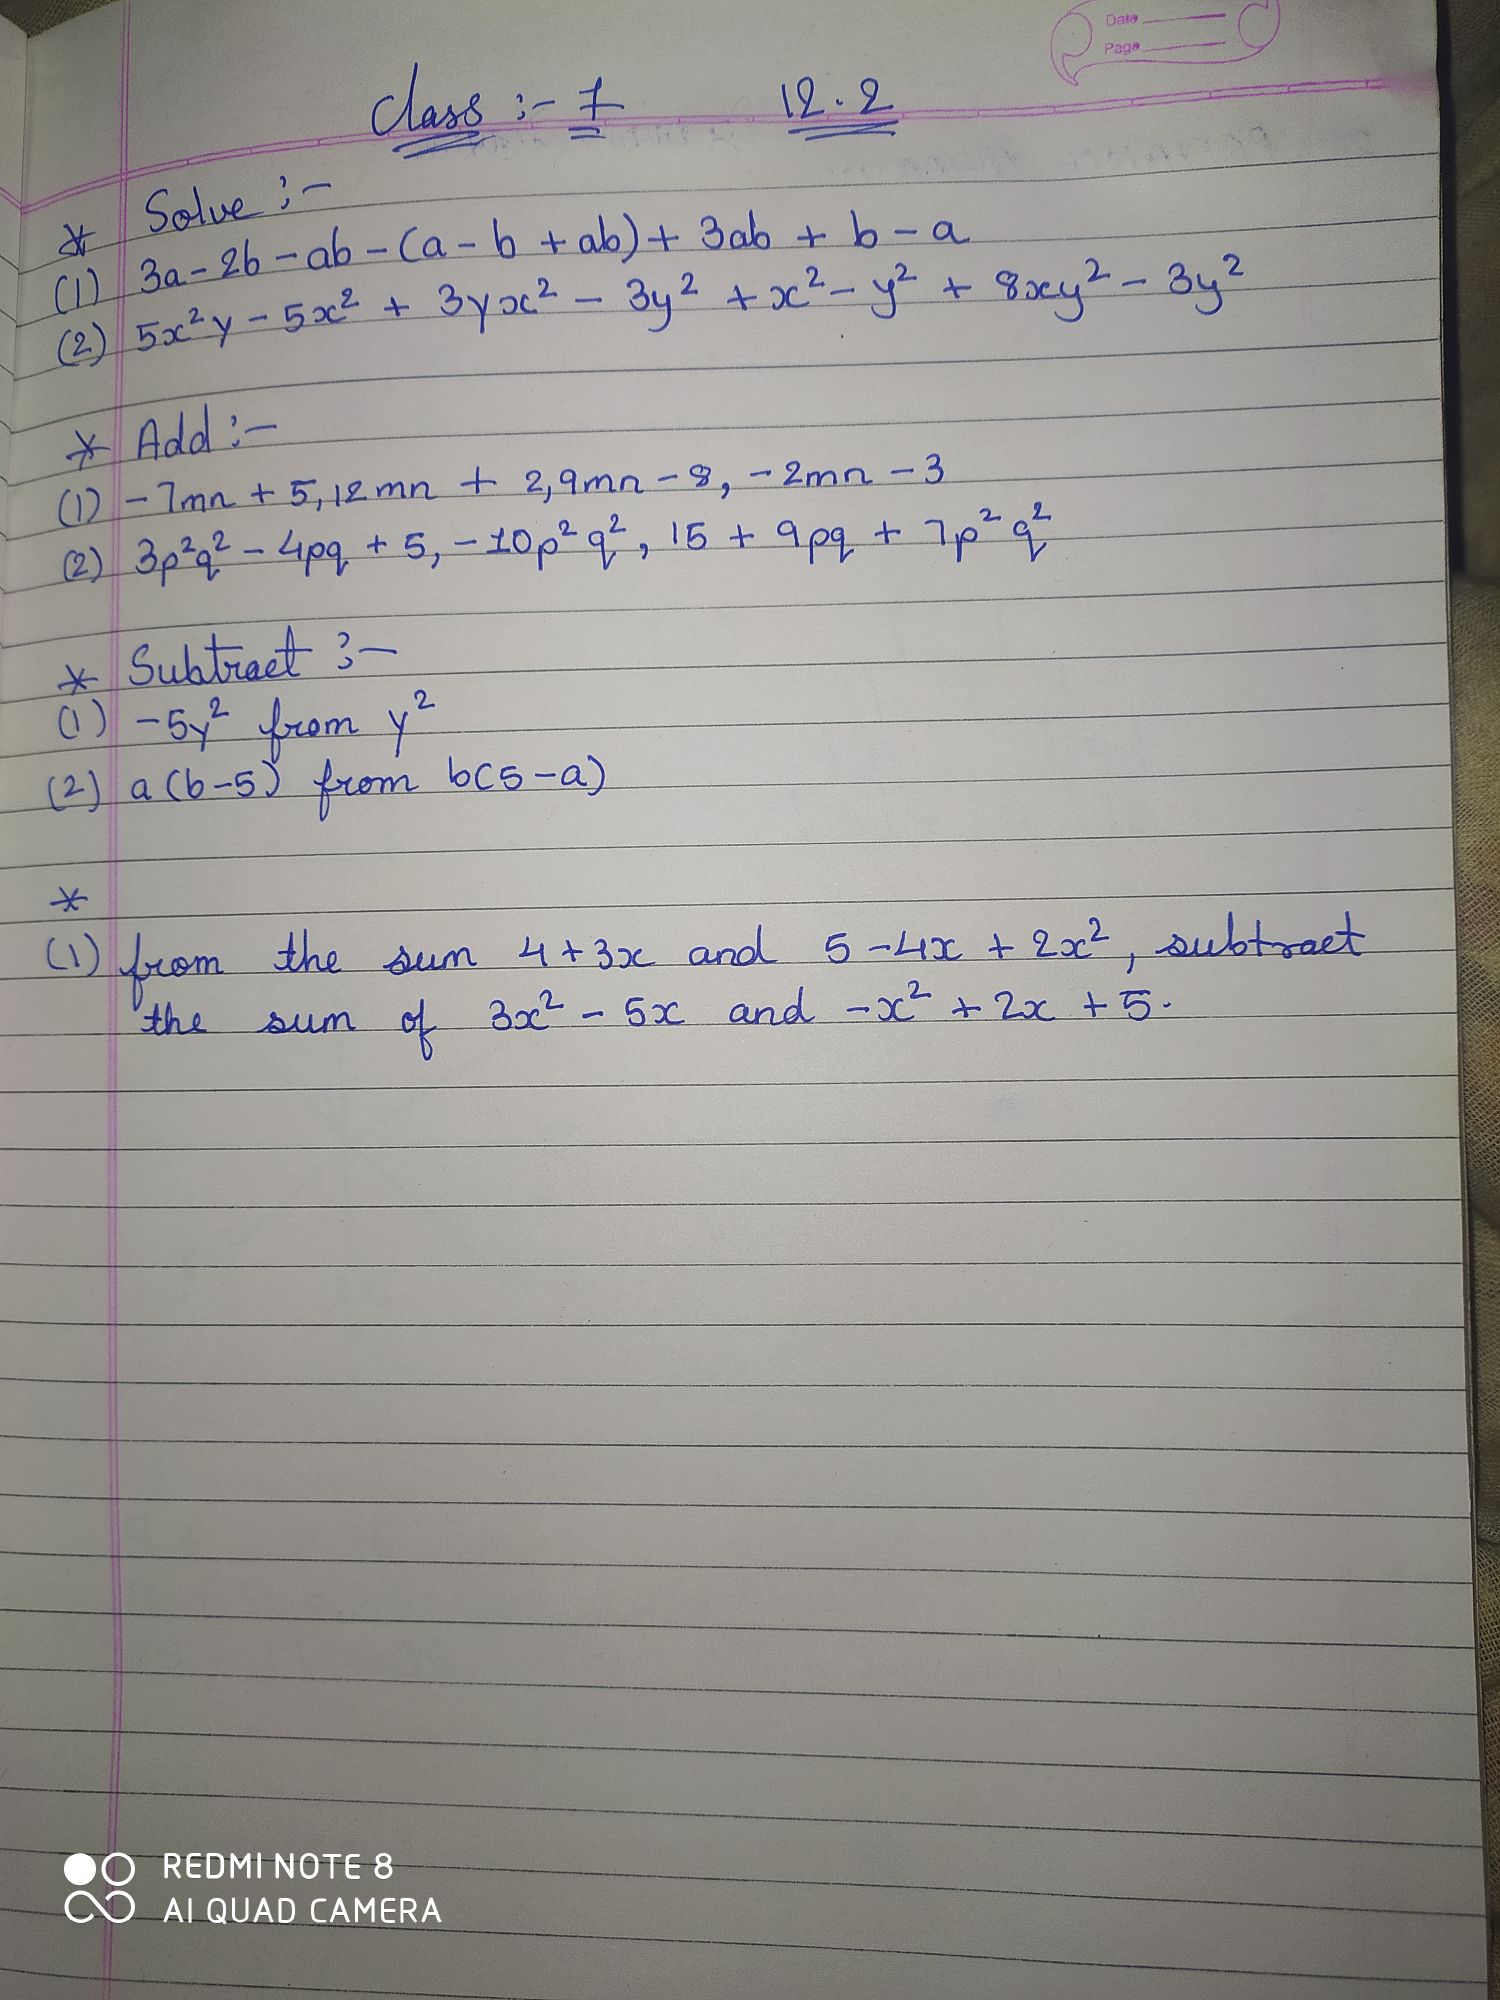 Date
Page
Class :- 7 12.2
* Solve :-
(1) 3a - 2b - ab - (a - b + ab) + 3ab + b - a
(2) 5x²y - 5x² + 3yx² - 3y² + x² - y² + 8xy² - 3y²
* Add :-
(1) -7mn + 5, 12mn + 2, 9mn - 8, -2mn - 3
(2) 3p²q² - 4pq + 5, -10p²q², 15 + 9pq + 7p²q²
* Subtract :-
(1) -5y² from y²
(2) a(b-5) from b(5-a)
*
(1) from the sum 4 + 3x and 5 - 4x + 2x², subtract
the sum of 3x² - 5x and -x² + 2x + 5.
REDMI NOTE 8
AI QUAD CAMERA